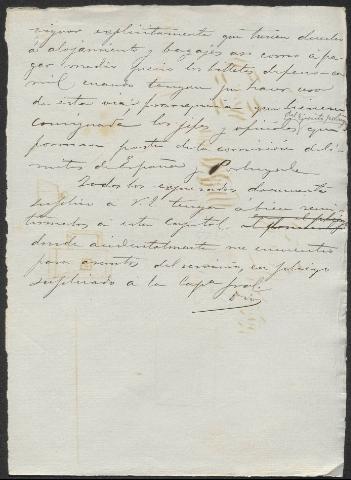 explicitamente que tienen derecho
á alojamiento y bagajes asi como á pa-
gar medio precio los billetes de ferro-ca-
rril cuando tengan que hacer uso
de esta via, prerrogativas que tienen
del Ejército
consignada los jefes y oficiales que
forman parte de la comision de lí-
mites de España y Portugal.
Todos los expresados documentos
suplico á V.E. tenga á bien remi-
tirmelos á esta Capital,
donde accidentalmente me encuentro
para asuntos del servicio, en pliego
duplicado a la Capª Gral.
Dios